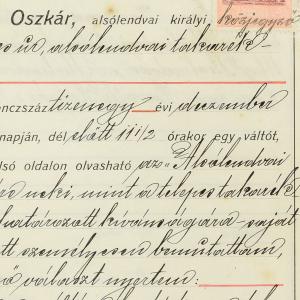 Oszkár, alsólendvai királyi közjegyző
úr, alsólendvai takarék-
enczszáz tizenegy évi deczember
napján, dél előtt 11 1/2 órakor egy váltót,
lsó oldalon olvasható az „Alsólendvai
neki, mint a telepes takarék
határozott kívánságára saját
tt személyesen bemutattam,
választ nyertem: